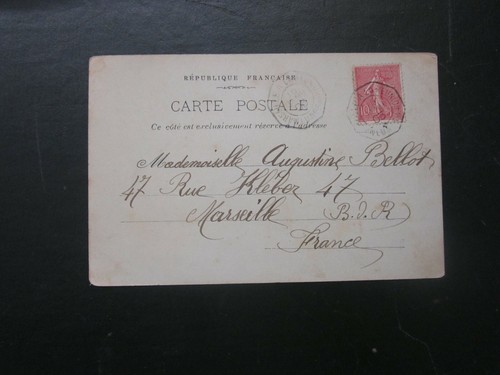 RÉPUBLIQUE FRANÇAISE
CARTE POSTALE
Ce côté est exclusivement réservé à l'adresse
Mademoiselle Augustine Bellot
47 Rue Kléber 47
Marseille B. d. R
France